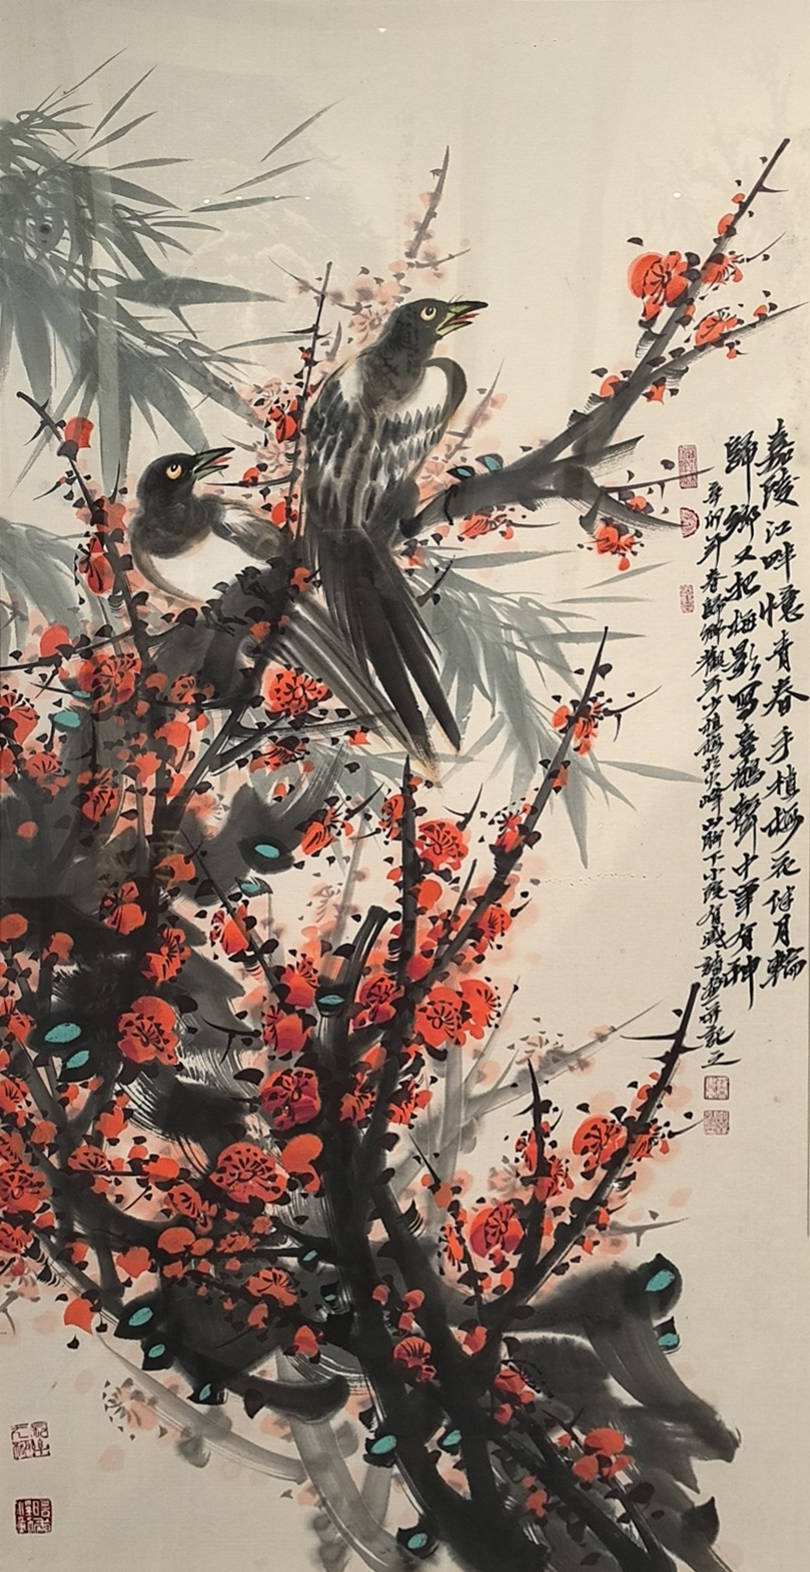 嘉陵江畔憶青春手植梅花伴月輪
歸鄉又把梅影寫喜鵲聲中筆有神
辛卯年春歸鄉觀年少植梅於火峰山腳下小院有感詩畫並記之